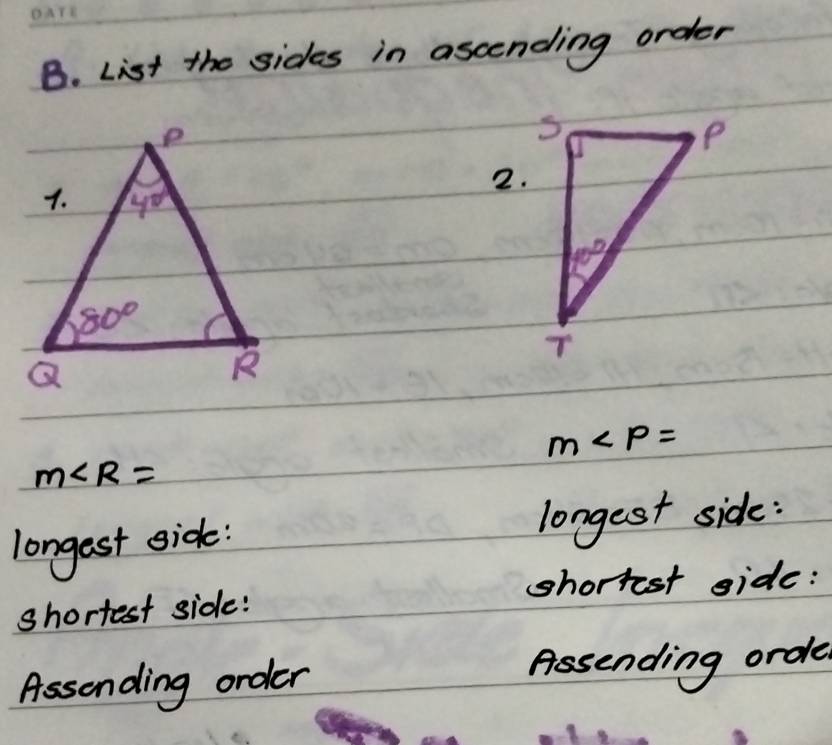 DATE
B. List the sides in ascending order
1.
P
40
80°
Q
R
2.
S
P
T
m<R =
longest side:
shortest side:
Assending order
m<P =
longest side:
shortest side:
Assending order